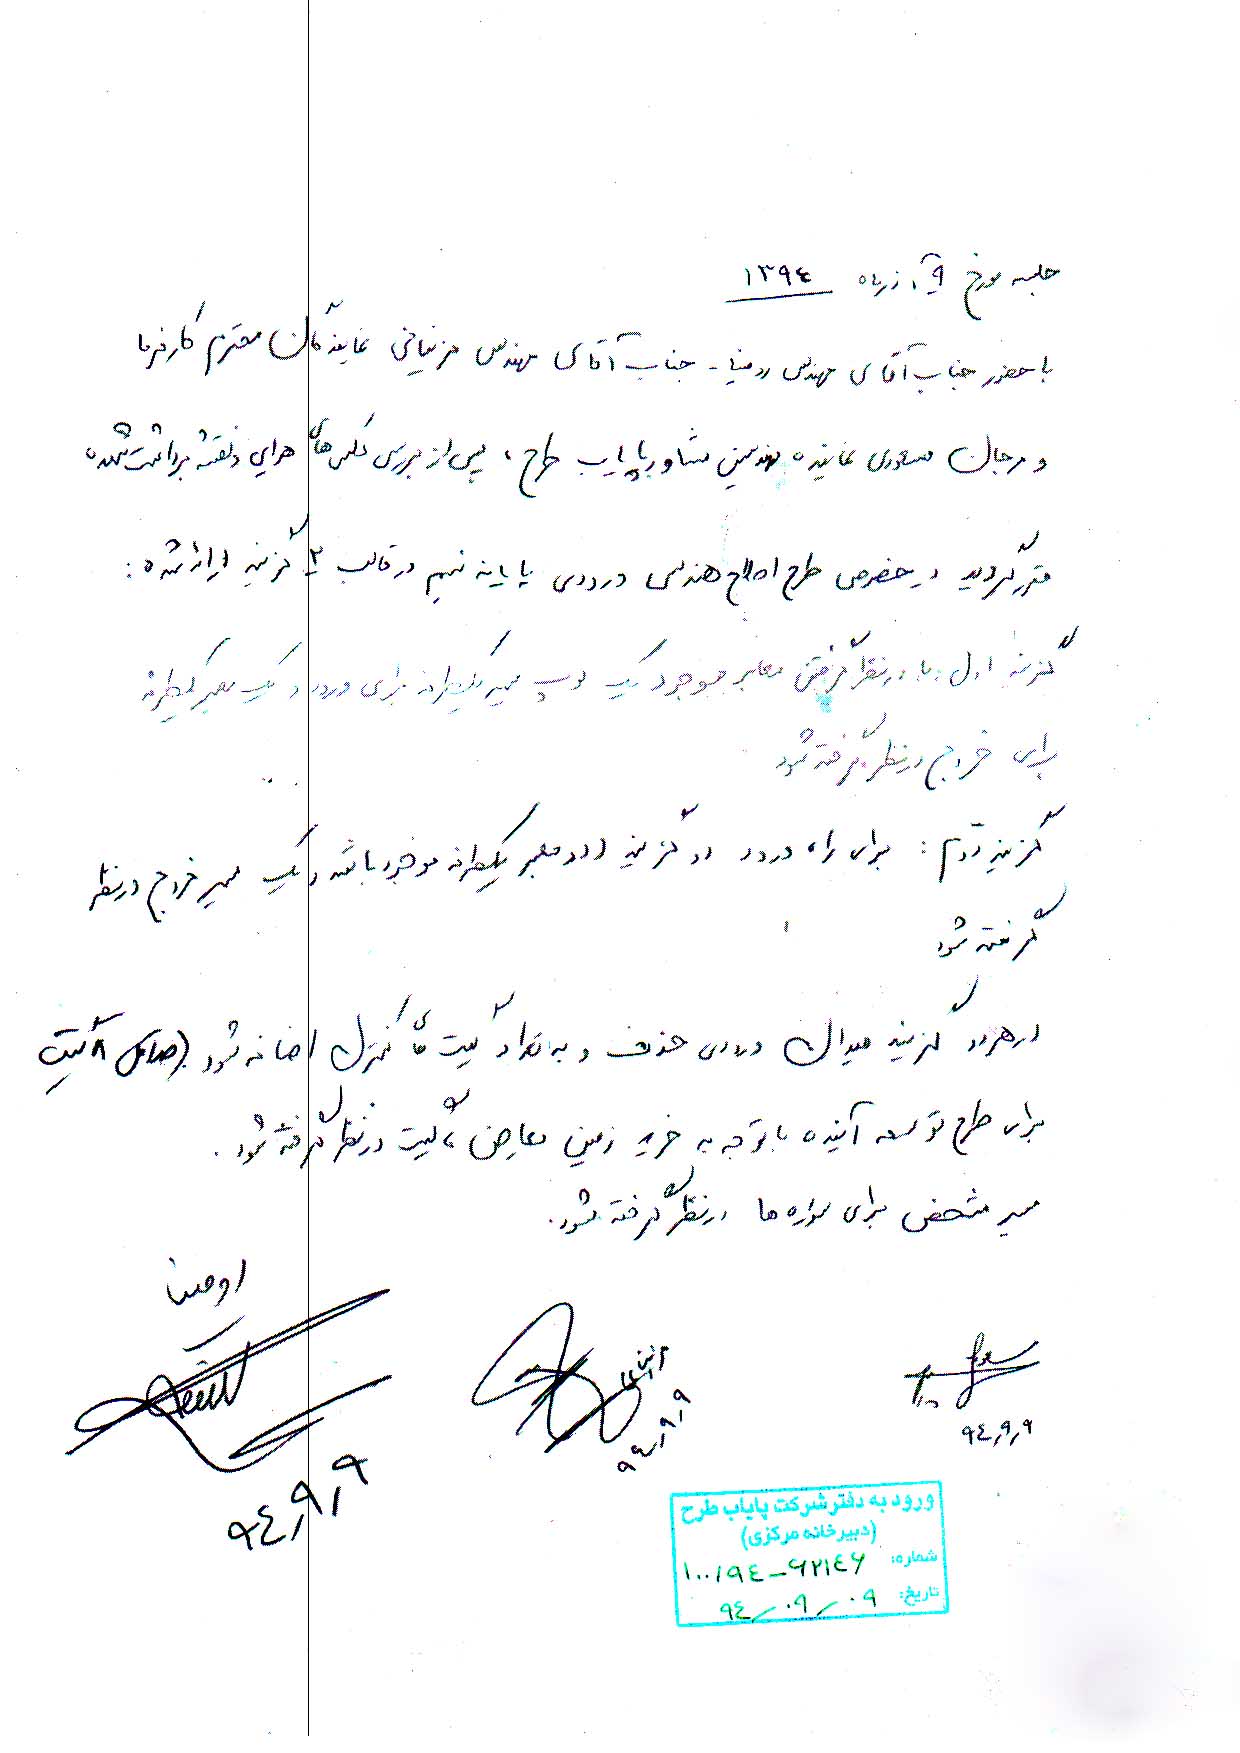 جلسه مورخ ۹ آذرماه ۱۳۹۴
با حضور جناب آقای مهندس رومینا - جناب آقای مهندس نمایندگان محترم کارفرما
و مرجان صبوری نماینده مهندسین مشاور پایاب طرح ، پس از بررسی عکس‌های هوایی و نقشه برداشت شده
مقرر گردید در خصوص طرح اصلاح هندسی ورودی پایانه در قالب ۲ گزینه ارائه شود :
گزینه اول : با در نظر گرفتن معابر موجود یک لوپ مسیر یکطرفه برای ورود و یک معبر یکطرفه
برای خروج در نظر گرفته شود
گزینه دوم : برای راه ورود دو گزینه دو معبر یکطرفه موجود باشد و یک مسیر خروج در نظر
گرفته شود
در هر دو گزینه میدان ورودی حذف و به تعداد گیت های کنترل اضافه شود (حداقل ۸ گیت
برای طرح توسعه آینده با توجه به خرید زمین معارض گیت در نظر گرفته شود .
مسیر مشخص برای سواره ها در نظر گرفته شود .
رومینا
۹۴٫۹٫۹
۹۴٫۹٫۹
۹۴٫۹٫۹
ورود به دفتر شرکت پایاب طرح
(دبیرخانه مرکزی)
شماره: ۱۰۰/۹۴-۶۲۱۴۶
تاریخ: ۹۴/۰۹/۰۹